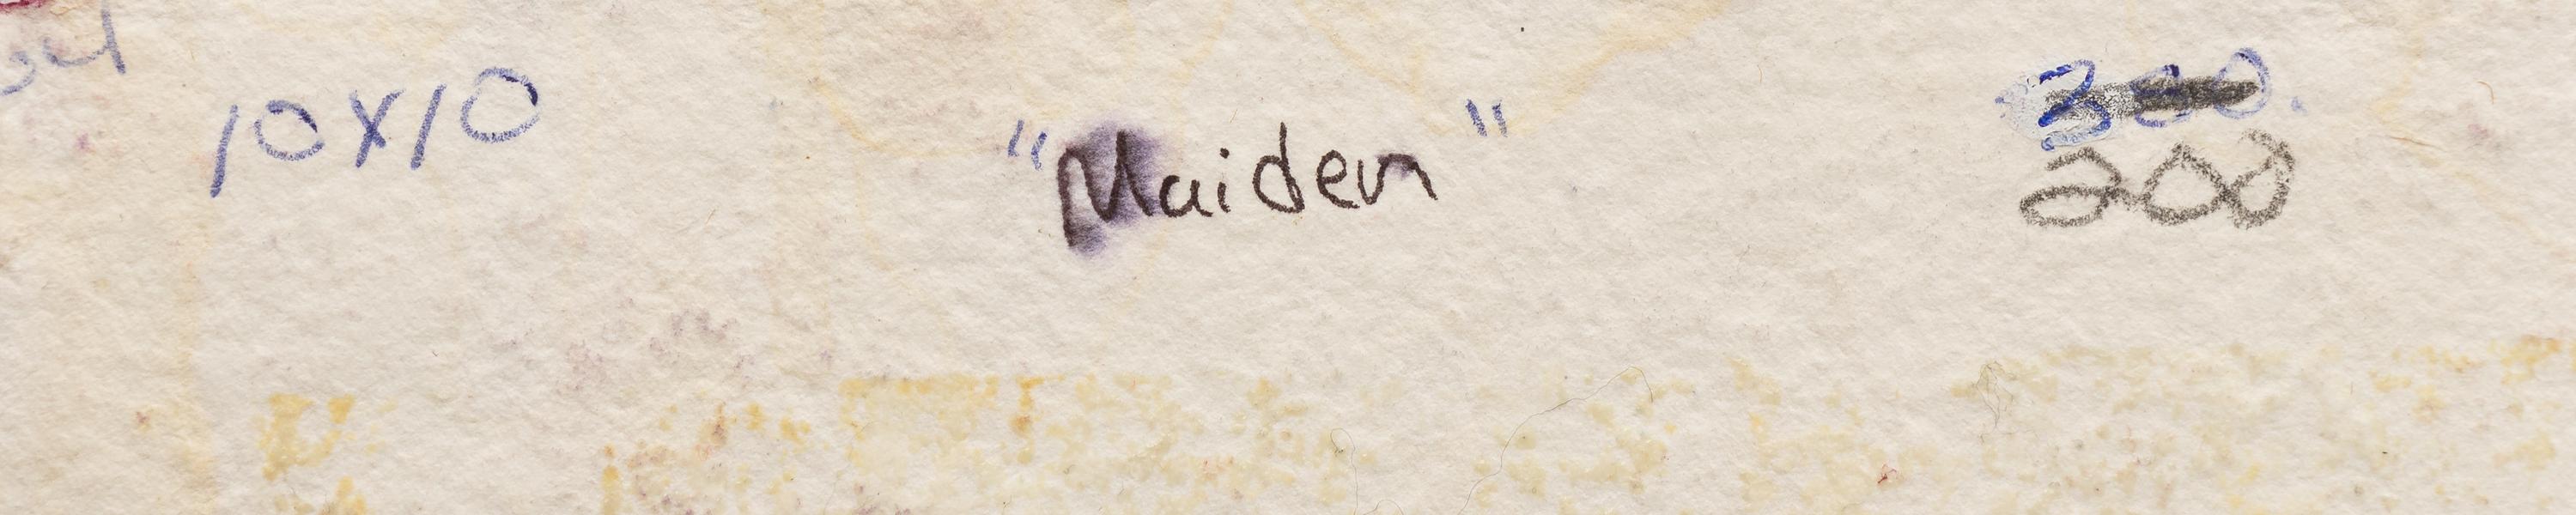 10x10 "Maiden" 300.
200